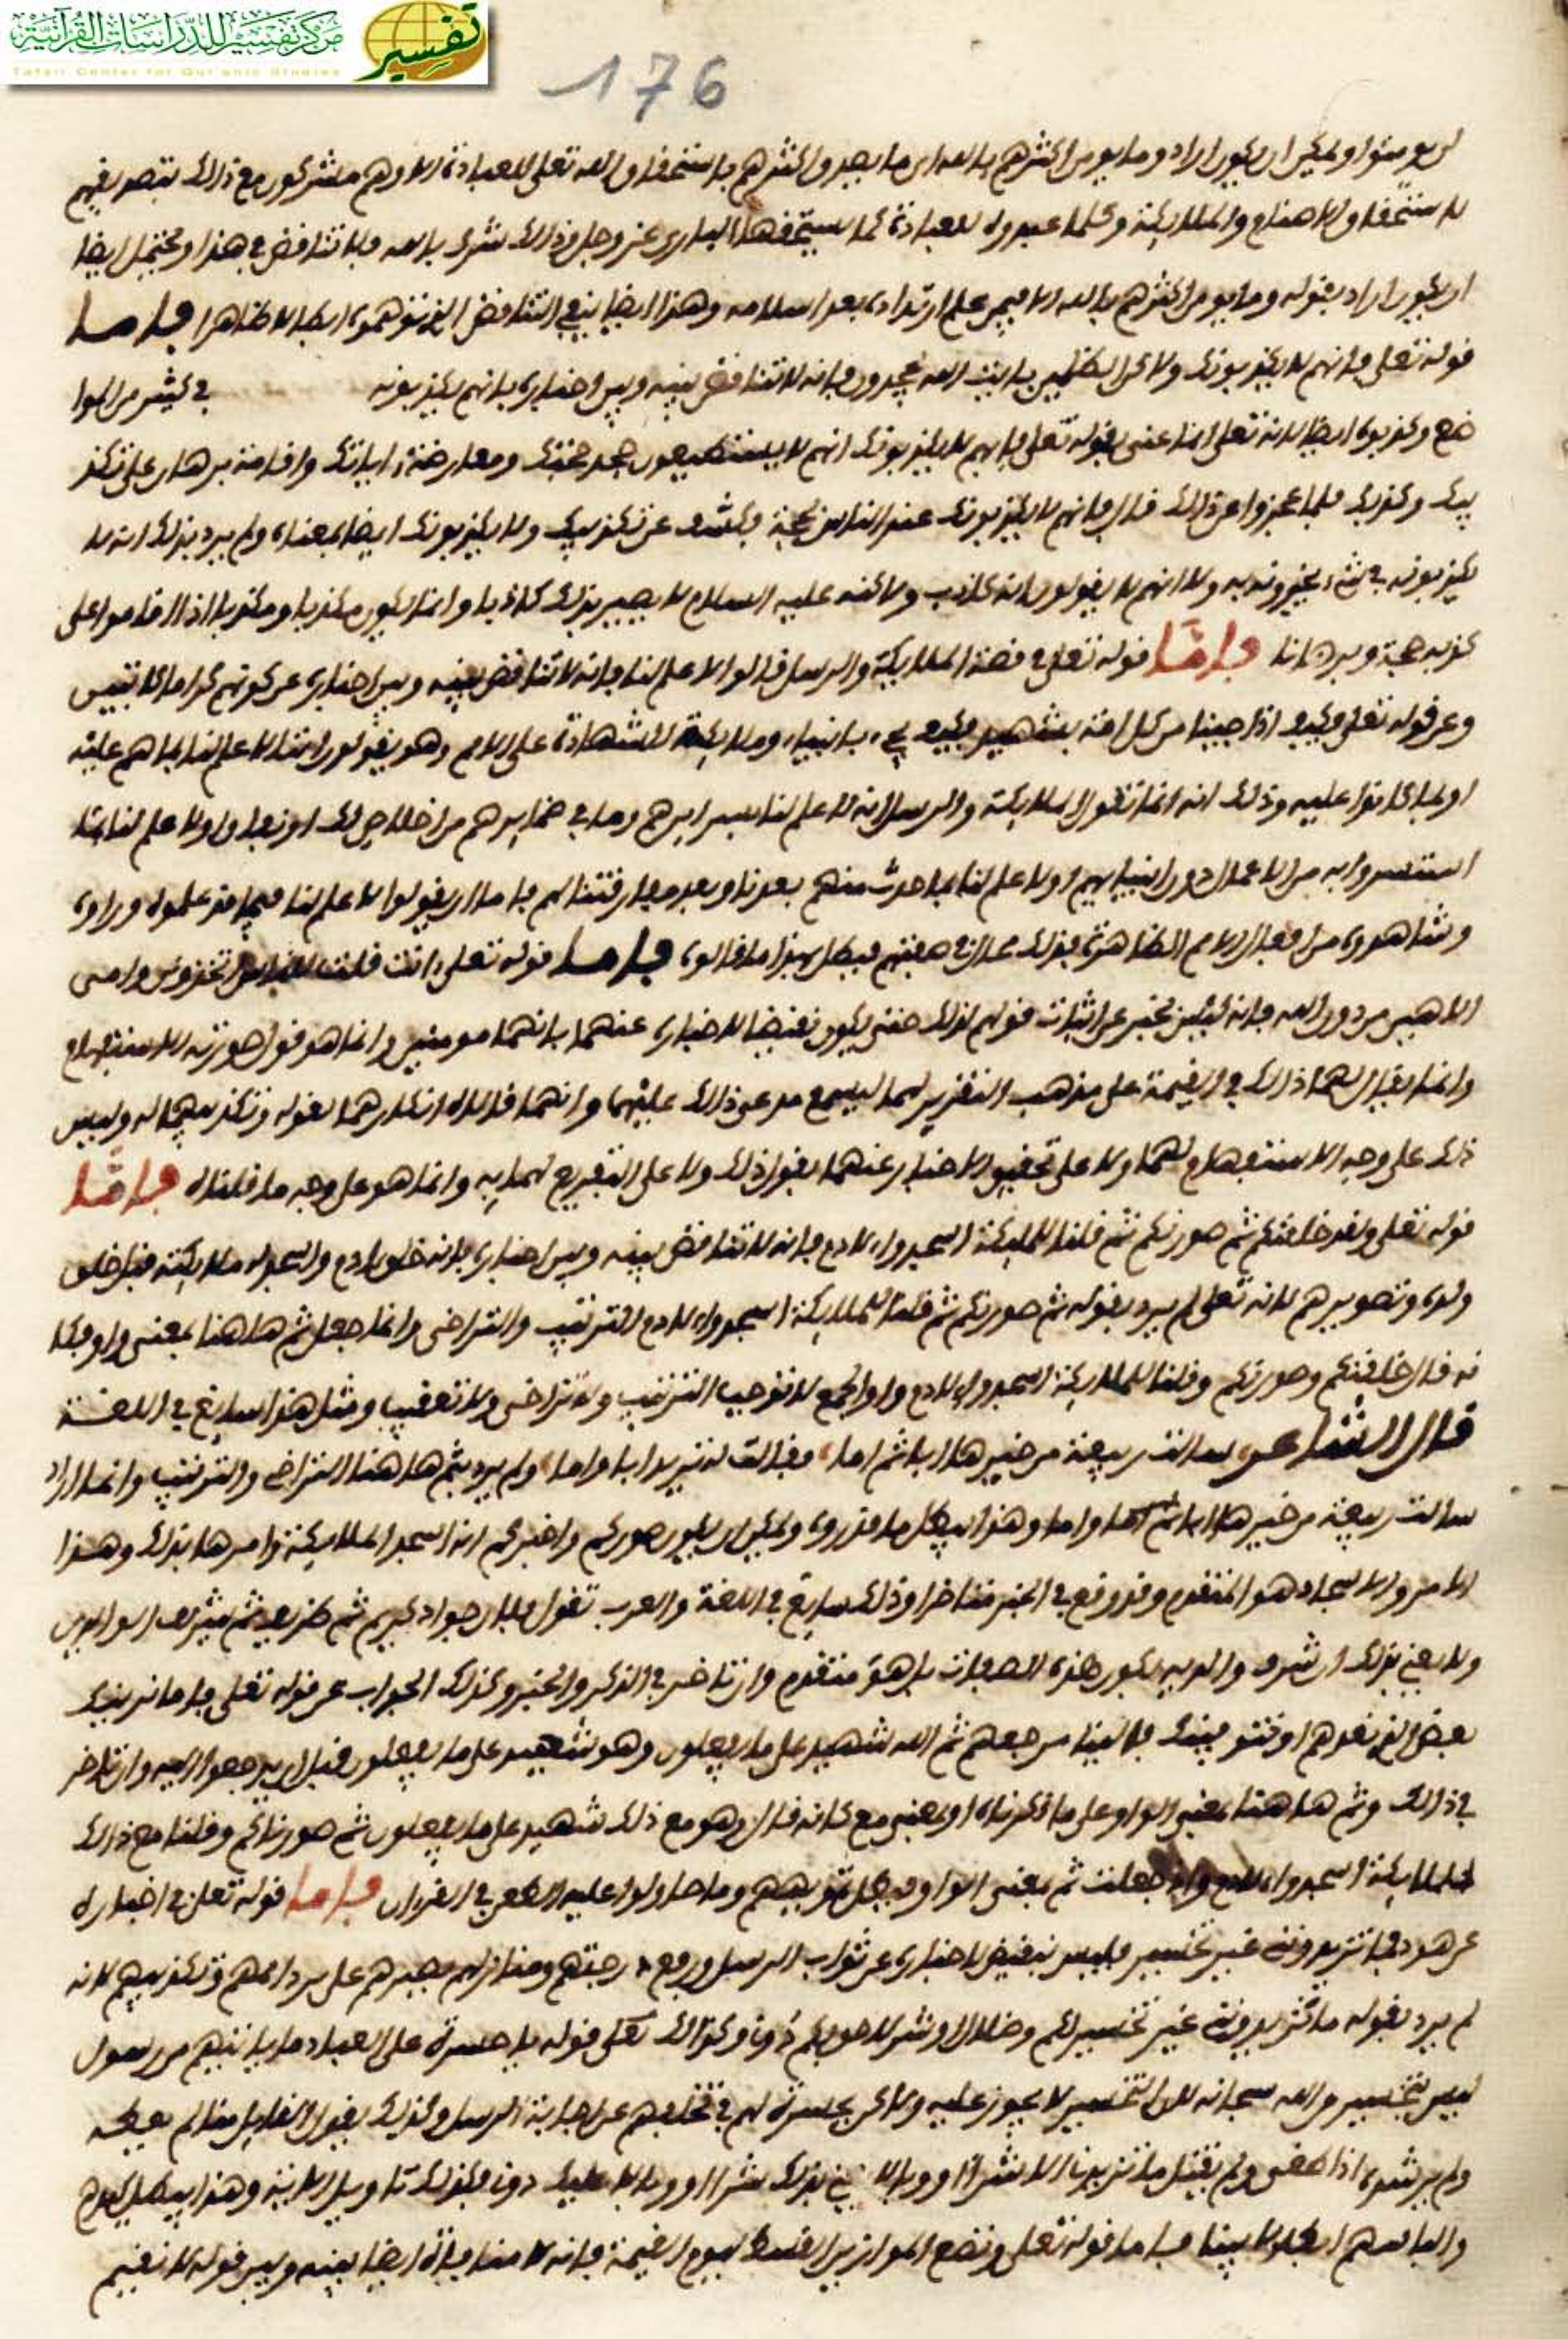 مركز تفسير للدراسات القرآنية
تفسير
Tafsir Center for Qur'anic Studies
176
لن يومنوا ويمكن ان يكون اراد وما يومن اكثرهم بالله اي ما يصدق اكثرهم باستحقاق الله تعلى للعبادة الا وهم مشركون مع ذلك بتصديقهم
لاستحقاق الاصنام والملايكة وكلما عبدوه للعبادة كما يستحقها الباري عز وجل وذلك شرك بالله ولا تناقض في هذا ويحتمل ايضا
ان يكون اراد بقوله وما يومن اكثرهم بالله الا فيمن علم ارتداده بعد اسلامه وهذا ايضا ينفي التناقض الذي توهموه ابطالا ظاهرا فاما
قوله تعلى فانهم لا يكذبونك ولاكن الظلمين بايت الله يجحدون فانه لا تناقض بينه وبين اخباره بانهم يكذبونه في كثير من الموا
ضع وكذبوه ايضا لانه تعلى انما عنى بقوله تعلى فانهم لا يكذبونك انهم لا يستطيعون جحد حجتك ومعارضة اياتك واقامة برهان على تكذ
يبك وكذبك فلما عجزوا عن ذلك قال فانهم لا يكذبونك عند الناس بحجة تكشف عن تكذيبك ولا يكذبونك ايضا بمعناه ولم يرد بذلك انه لا
يكذبونه في شيء يخبرونه به ولا انهم لا يقولون انه كاذب ولاكنه عليه السلام لا يصير بذلك كاذبا وانما يكون مكذبا ومكذوبا اذا اقاموا على
كذبه حجة وبرهانا فاما قوله تعلى في قصة الملايكة والرسل قالوا لا علم لنا فانه لا تناقض بينه وبين اخباره عن كونهم كراما كاتبين
وعن قوله تعلى فكيف اذا جينا من كل امة بشهيد فكيف يجيء بانبياء وملايكة للشهادة على الامم وهو يقولون انا لا علم لنا بما هم عليه
او بما كانوا عليه وذلك انه انما تقول الملايكة والرسل انه لا علم لنا بسرايرهم وما في ضمايرهم من اخلاص لك او نفاق او لا علم لنا بما
استسروا به من الاعمال دون انبيايهم او لا علم لنا بما حدث منهم بعدنا وبعد مفارقتنا لهم فاما ان يقولوا لا علم لنا فيما قد علموه وراوه
وشاهدوه من افعال الامم الظاهرة فذلك محال في صفتهم فبطل بهذا ما قالوه فاما قوله تعلى اانت قلت للناس اتخذوني وامي
الاهين من دون الله فانه ليس بخبر عن اثبات قولهم لذلك حتى يكون نقيضا لاخباره عنهما بانهما مومنين وانما هو قول صورته الاستفهام
وانما يقال لهما ذلك في القيمة على مذهب التقرير لهما ليسمع مدعي ذلك عليهما وانهما قالاه انكارهما لقوله وتكذيبهما له وليس
ذلك على وجه الاستفهام لهما ولا على تحقيق الاخبار عنهما بقول ذلك ولا على التقريع لهما به وانما هو على وجه ما قلناه فاما
قوله تعلى ولقد خلقنكم ثم صورنكم ثم قلنا للملايكة اسجدوا لادم فانه لا تناقض بينه وبين اخباره بانه خلق ادم واسجد له ملايكته قبل خلق
ولده وتصويرهم لانه تعلى لم يرد بقوله ثم صورنكم ثم قلنا للملايكة اسجدوا لادم الترتيب والتراخي وانما جعل ثم هاهنا بمعنى واو فكا
نه قال خلقنكم وصورنكم وقلنا للملايكة اسجدوا لادم وواو الجمع لا توجب الترتيب ولا تراخي ولا تعقيب ومثل هذا سايغ في اللغة
قال الشاعر سالت ربيعة من خيرها ابا ثم اما فقالت لمه يريد ابا واما ولم يرد بثم هاهنا التراخي والترتيب وانما اراد
سالت ربيعة من خيرها ابا واما وهذا يبطل ما قدروه ويمكن ان يكون صوركم واخبركم انه اسجد الملايكة وامرها بذلك وهذا
الامر والاسجاد هو المتقدم وقد وقع في الخبر متاخرا وذلك سايغ في اللغة والعرب تقول فلان جواد كريم ثم ظريف ثم شريف ابوه
ولا يعني بذلك ان شرف والديه يكون هذه الصفات بل هو متقدم وان تاخر في الذكر والخبر وكذلك الجواب عن قوله تعلى فاما نرينك
بعض الذي نعدهم او نتوفينك فالينا مرجعهم ثم الله شهيد على ما يفعلون وهو شهيد على ما يفعلون قبل ان يرجعوا اليه وان تاخر
في ذلك وثم هاهنا بمعنى الواو على ما ذكرناه او بمعنى مع كانه قال وهو مع ذلك شهيد على ما يفعلون ثم صورناكم وقلنا مع ذلك
للملايكة اسجدوا لادم واذا جعلت ثم بمعنى الواو بطل توهمهم وما حاولوا عليه الطعن في القران فاما قوله تعلى في اخباره
عن هود فما تزيدونني غير تخسير فليس بنقيض لاخباره عن ثواب الرسل ورفع درجتهم ومنازلهم بصبرهم على ردهم وتكذيبهم لانه
لم يرد بقوله ما تزيدونني غير تخسير لكم وضلال وشر لاحق بكم دوني وكذلك تعلى قوله يا حسرة على العباد ما ياتيهم من رسول
ليس بتحسير من الله سبحانه لان التحسير لا يجوز عليه ولاكن بحسرة لهم في تخلفهم عن اجابة الرسل وكذلك يقول القايل منا لم يعظه
ولم يرشده اذا عصى ولم يقبل ما تزيدنا الا شرا ووبالا يعني بذلك شرا ووبالا عليك دوني فكذلك تاويل الاية وهذا يبطل
والباسهم ابطالا بينا فاما قوله تعلى ونضع الموازين القسط ليوم القيمة فانه لا منافاة ايضا بينه وبين قوله لا نقيم